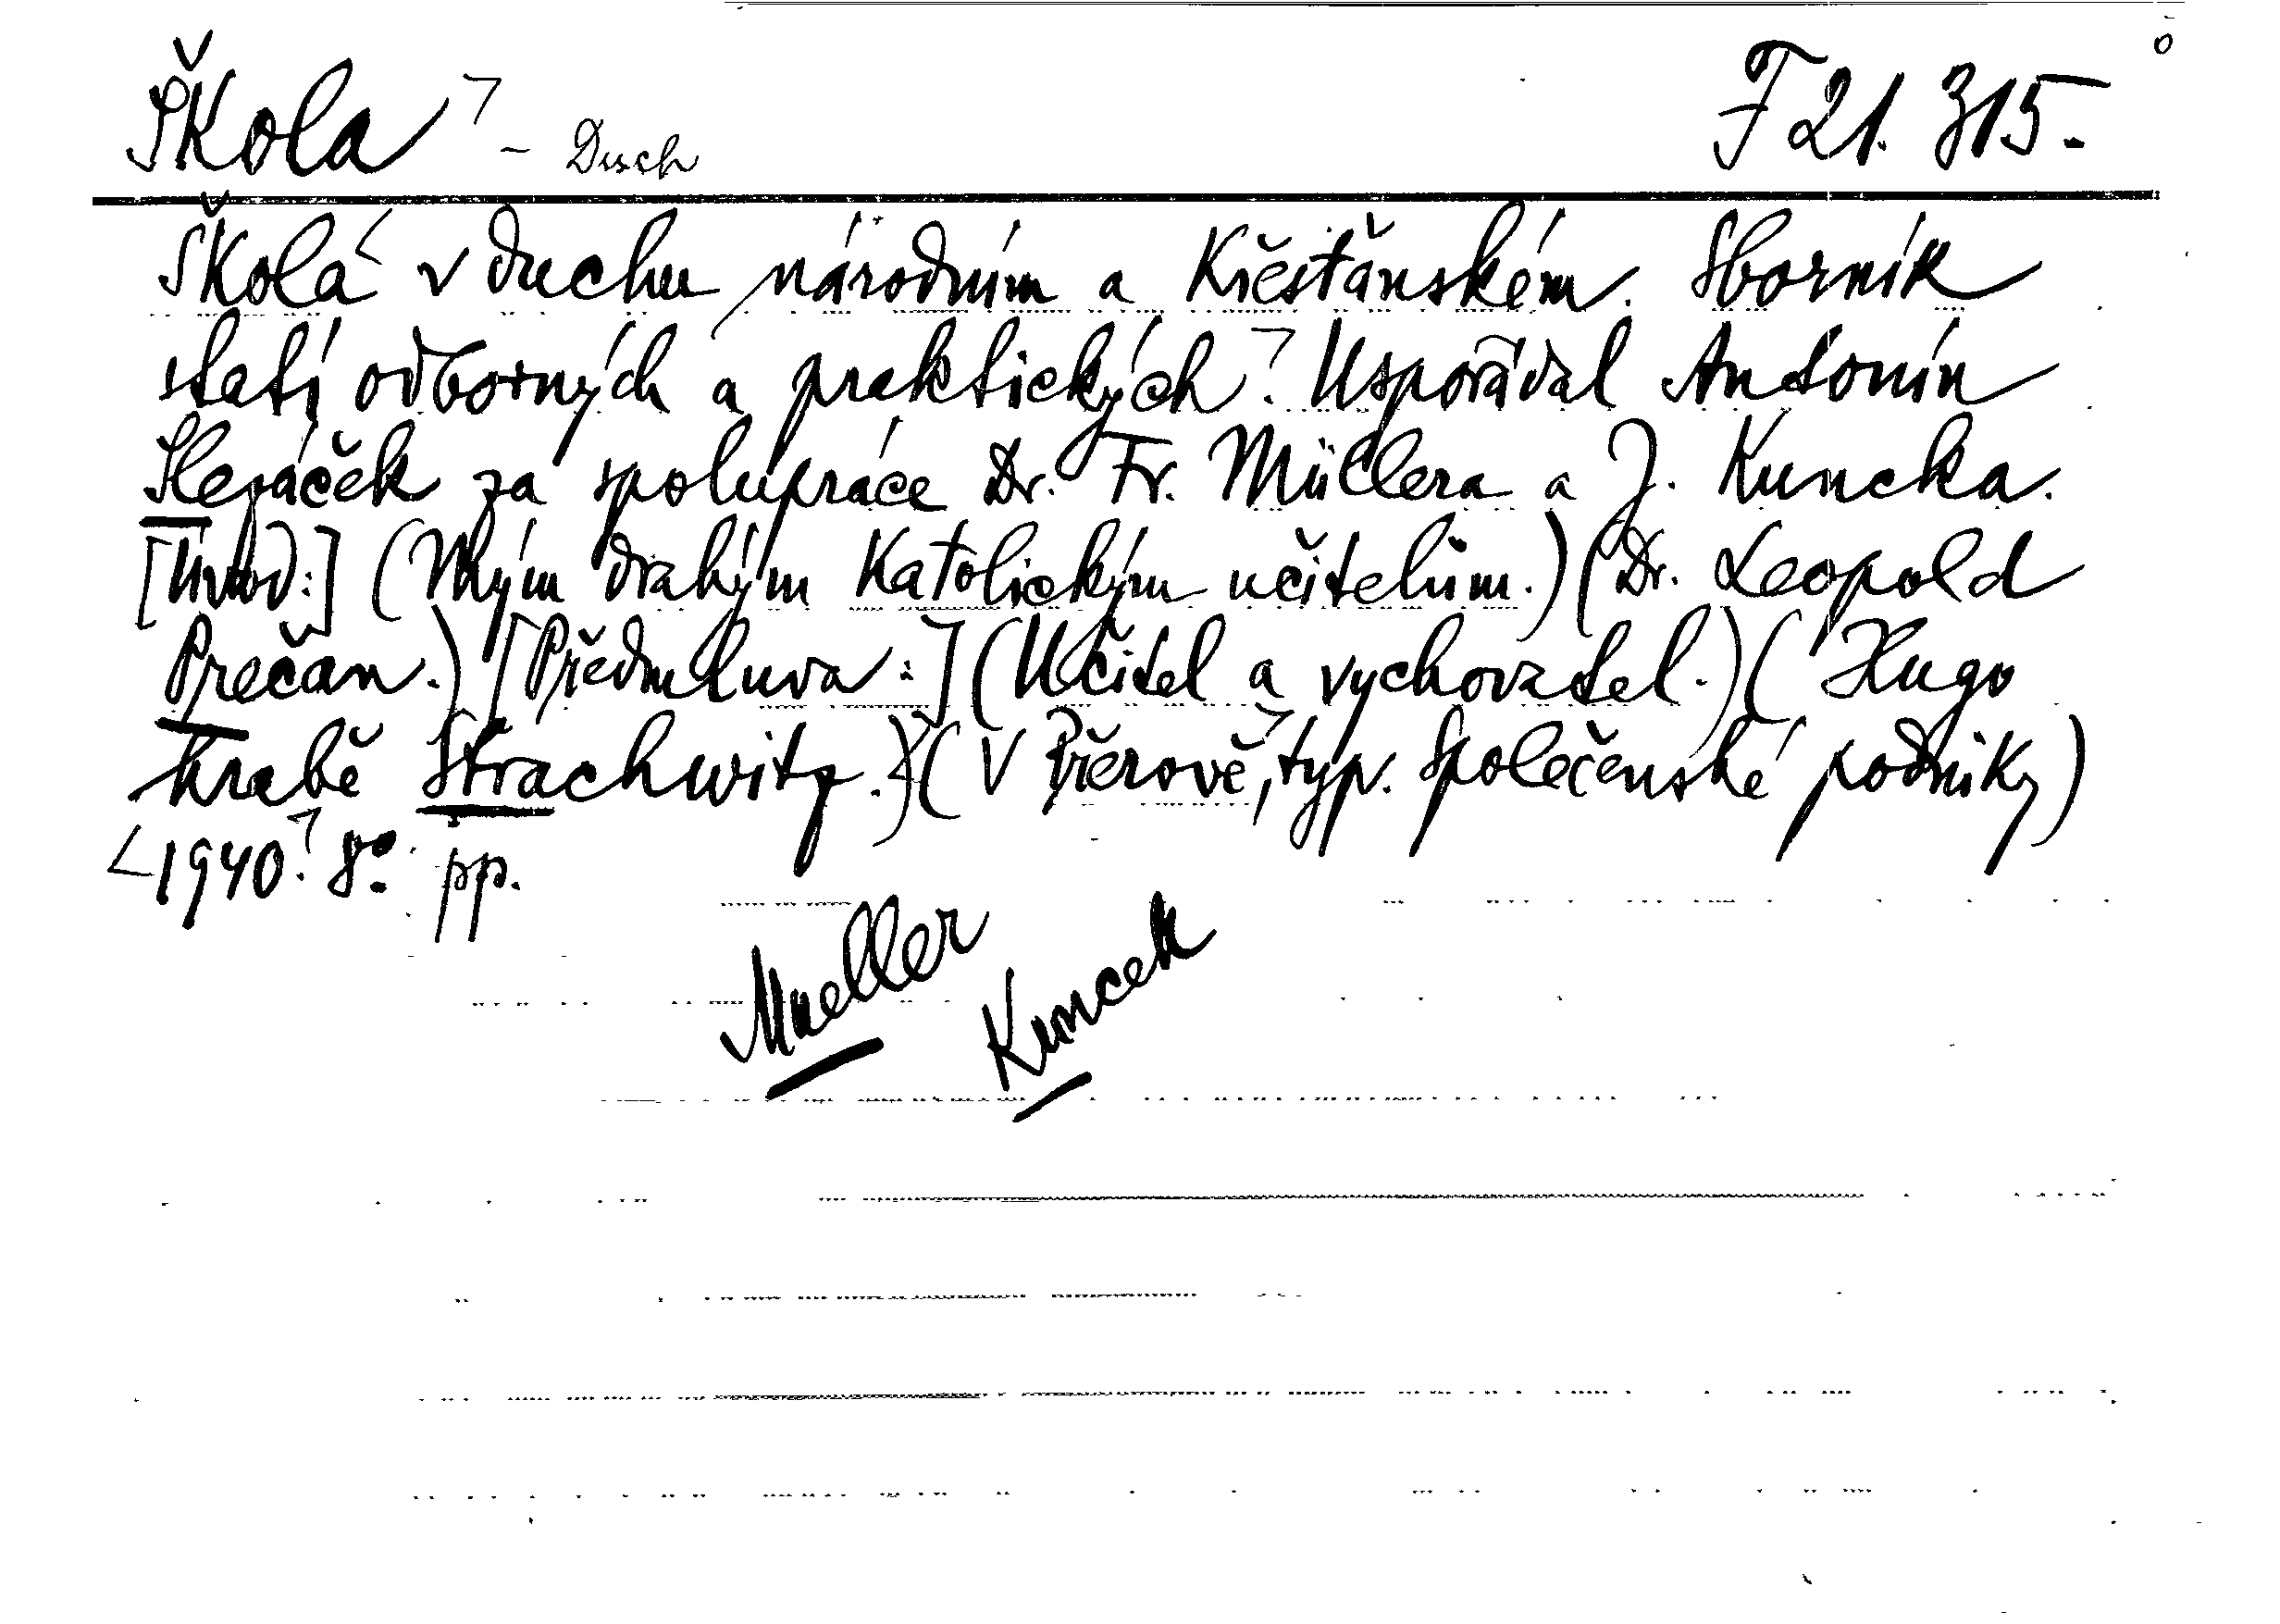 Škola - Duch F 21.315.
Škola v duchu národním a křesťanském. Sborník
statí odborných a praktických. Uspořádal Antonín
Slepáček za spolupráce Dr. Fr. Müllera a J. Kuncka.
[Úvod:] (Mým drahým katolickým učitelům.) (Dr. Leopold
Prečan.) [Předmluva:] (Učitel a vychovatel.) (Hugo
hrabě Strachwitz.) (V Přerově, typ. Společenské podniky)
1940. 8º. pp.
Mueller
Kuncek